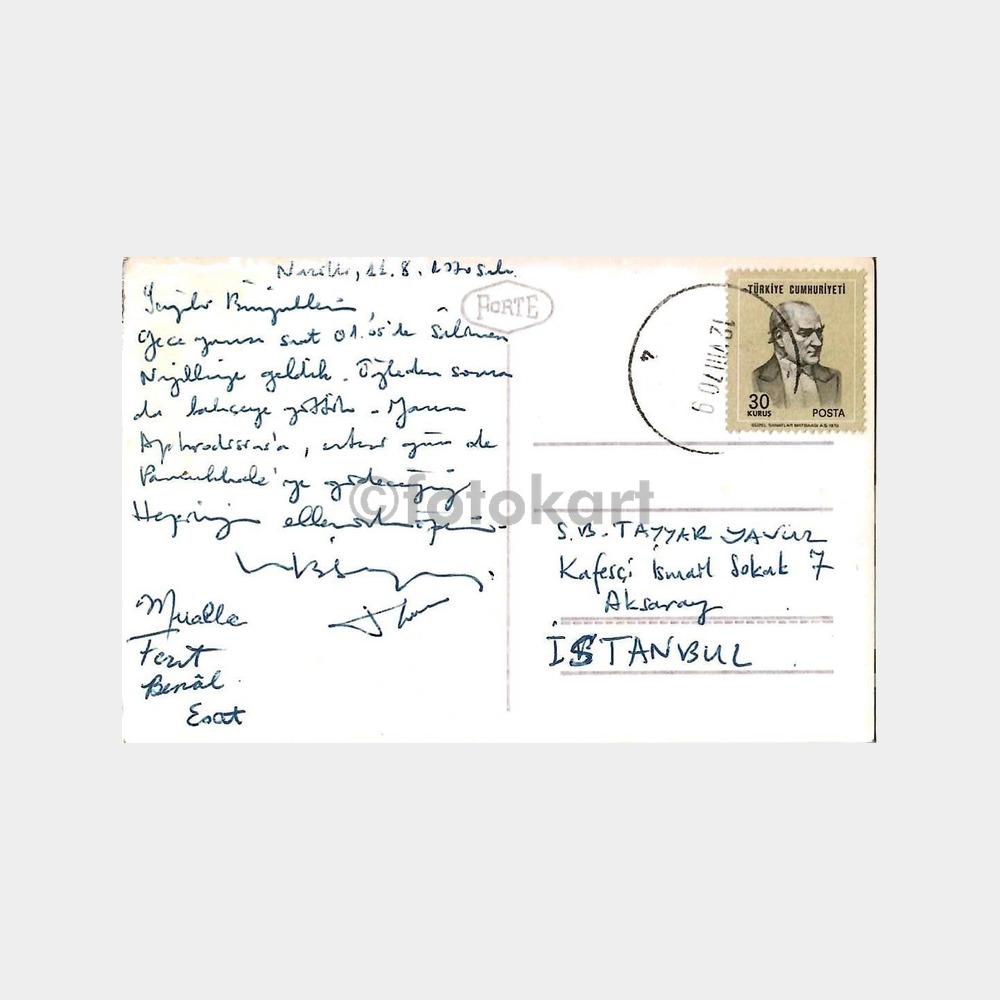 Nazilli, 11.8.1970 Salı.
Sevgili Büyüklerim
Gece yarısı saat 01.05'de
geldik. Öğleden sonra
da bahçeye gittik. Yarın
Aphrodisias'a, ertesi gün de
Pamukkale'ye gideceğiz.
Hepinizin ellerinden öperiz.
Mualla
Ferit
Benâl
Esat
FORTE
TÜRKİYE CUMHURİYETİ
30
KURUS
POSTA
GÜZEL SANATLAR MATBAASI A.S. 1970
12 VIII 70 9
4
©fotokart
S.B. TAYYAR YAVUZ
Kafesçi İsmail Sokak 7
Aksaray
İSTANBUL